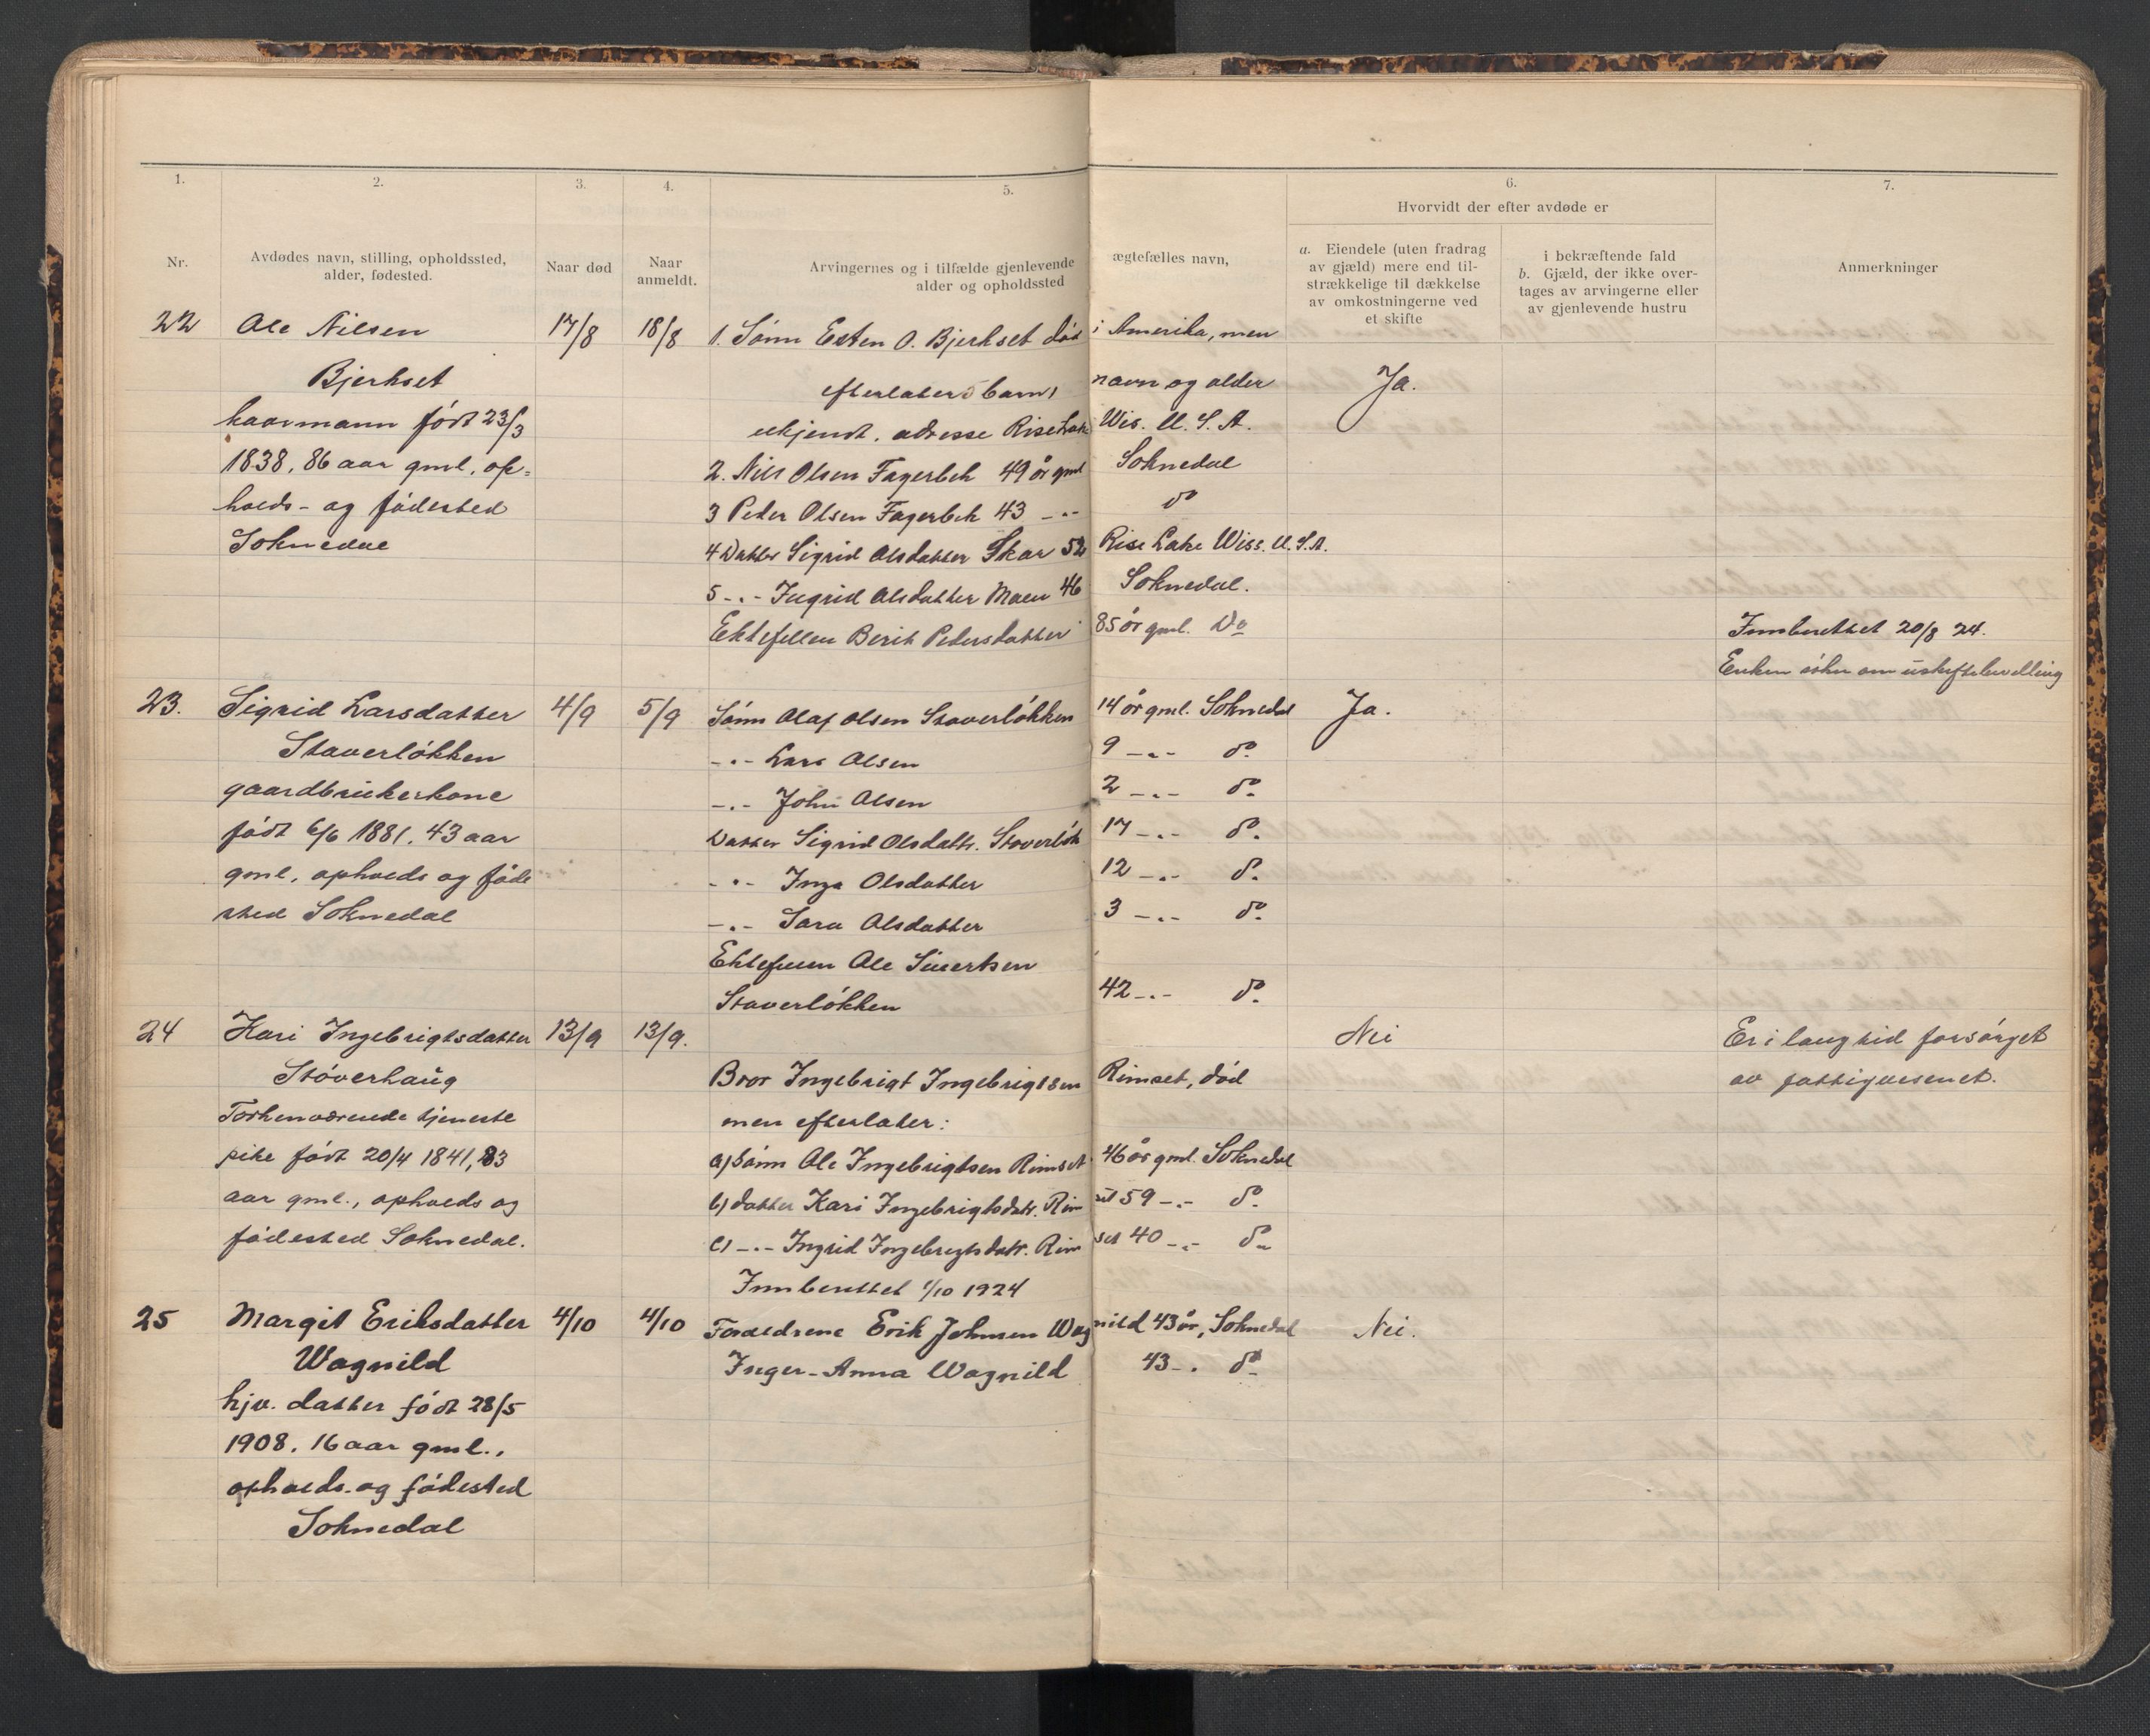 1. 2. 3. 4. 5. 6. 7.
Hvorvidt der efter avdøde er
Nr.
Avdødes navn, stilling, opholdssted,
alder, fødested.
Naar død
Naar
anmeldt.
Arvingernes og i tilfælde gjenlevende ægtefælles navn,
alder og opholdssted
a. Eiendele (uten fradrag
av gjæld) mere end til-
strækkelige til dækkelse
av omkostningerne ved
et skifte
i bekræftende fald
b. Gjæld, der ikke over-
tages av arvingerne eller
av gjenlevende hustru
Anmerkninger
22 Ole Nilsen 17/8 18/8 1. Sønn Esten O. Bjerkset død i Amerika, men
Bjerkset efterlater 5 barn, navn og alder Ja.
kaarmann født 23/3 ukjendt. adresse Rise Lake Wis. U. S. A.
1838, 86 aar gml, op= 2. Nils Olsen Fagerbek 49 år gml Soknedal
holds- og fødested 3 Peder Olsen Fagerbek 43 -"- do
Soknedal 4 Datter Sigrid Olsdatter Skar 52 Rise Lake Wiss. U. S. A.
5 -"- Ingrid Olsdatter Moen 46 Soknedal.
Ektefellen Berit Pedersdatter 85 år gml. Do Innberettet 20/8 24.
Enken søkn om uskiftebevelling
23. Sigrid Larsdatter 4/9 5/9 Sønn Olaf Olsen Staverløkken 14 år gml. Soknedal Ja.
Staverløkken -"- Lars Olsen 9 -"- do
gaardbrukerkone -"- John Olsen 2 -"- do
født 6/6 1881. 43 aar Datter Sigrid Olsdattr. Staverløk 17 -"- do
gml, opholds og føde -"- Inga Olsdatter 12 -"- do
sted Soknedal -"- Sara Olsdatter 3 -"- do
Ektefellen Ole Sivertsen
Staverløkken 42 -"- do
24 Kari Ingebrigtsdatter 13/9 13/9. Nei Er i lang tid forsørget
Støverhaug Bror Ingebrigt Ingebrigtsen Rimset, død av fattigvesenet.
Forhenværende tjeneste men efterlater:
pike født 20/4 1841, 83 a) Sønn Ole Ingebrigtsen Rimset 46 år gml. Soknedal
aar gml., opholds og b) datter Kari Ingebrigtsdatr. Rimset 59 -"- do
fødested Soknedal. c) -"- Ingrid Ingebrigtsdatr. Rimset 40 -"- do
Innberettet 1/10 1924
25 Margit Eriksdatter 4/10 4/10 Foreldrene Erik Johnsen Wagnild 43 år, Soknedal Nei.
Wagnild Inger-Anna Wagnild 43 -"- do
hjv. datter født 28/5
1908. 16 aar gml.,
opholds- og fødested
Soknedal